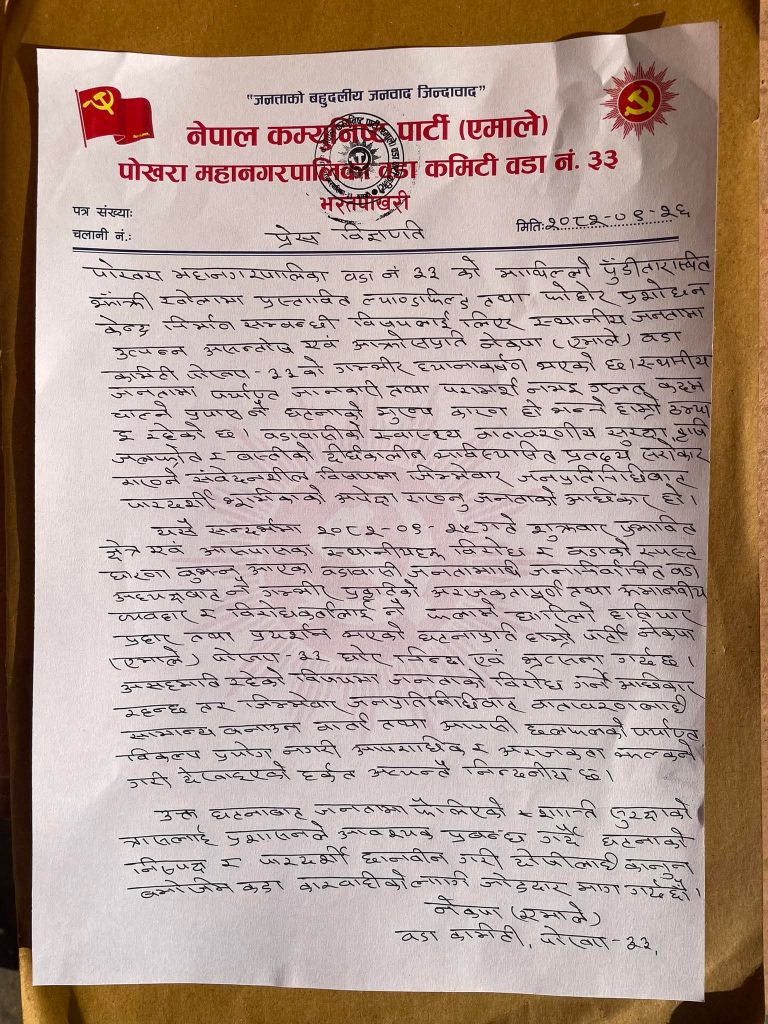 "जनताको बहुदलीय जनवाद जिन्दावाद"
नेपाल कम्युनिष्ट पार्टी (एमाले)
पोखरा महानगरपालिका वडा कमिटी वडा नं. ३३
भरतपोखरी
पत्र संख्याः
मितिः २०८२-०९-२६
चलानी नं.:
प्रेस विज्ञप्ति
पोखरा महानगरपालिका वडा नं ३३ को साविकको पुँडीतारास्थित
खोलामा प्रस्तावित ल्याण्डफिल्ड तथा फोहोर प्रशोधन
केन्द्र निर्माण सम्बन्धी विषयलाई लिएर स्थानीय जनतामा
उत्पन्न असन्तोष एवं आक्रोसप्रति नेकपा (एमाले) वडा
कमिटी पोखरा-३३ को गम्भीर ध्यानाकर्षण भएको छ। स्थानीय
जनतामा पर्याप्त जानकारी तथा परामर्श नभइ गलत कदम
चाल्ने प्रयास नै घटनाको मुख्य कारण हो भन्ने हाम्रो ठम्या
इ रहेको छ। वडावासीको स्वास्थ्य वातावरणीय सुरक्षा, कृषि
जलस्रोत र बस्तीको दीर्घकालीन भविष्यसित प्रत्यक्ष सरोकार
राख्ने संवेदनशील विषयमा जिम्मेवार जनप्रतिनिधिबाट
पारदर्शी भूमिकाको अपेक्षा राख्नु जनताको अधिकार हो।
यसै सन्दर्भमा २०८२-०९-२५ गते शुक्रवार प्रभावित
क्षेत्र एवं आसपासका स्थानीयहरू विरोध र वडाको स्पस्ट
धारणा बुझ्नु आएका वडावासी जनतामाथि जननिर्वाचित वडा
अध्यक्षबाट नै गम्भीर प्रकृतिको अराजकतापूर्ण तथा अमानवीय
व्यवहार र विरोधकर्तालाई नै धारिलो हातियार
प्रहार तथा प्रदर्शन भएको घटनाप्रति हाम्रो पार्टी नेकपा
(एमाले) पोखरा-३३ घोर निन्दा एवं भर्त्सना गर्दछ।
असहमति रहेको विषयमा जनताको विरोध गर्ने अधिकार
रहन्छ तर जिम्मेवार जनप्रतिनिधिबाट वातावरणलाई
सामान्य बनाउन वार्ता तथा आपसी छलफलको पर्याप्त
विकल्प प्रयोग नगरी आपराधिक र अराजकता झल्कने
गरी देखाइएको हर्कत अत्यन्तै निन्दनीय छ।
उक्त घटनाबाट जनतामा फैलिएको शान्ति सुरक्षाको
त्रासलाई प्रशासनले आवश्यक प्रबन्ध गर्दै घटनाको
निष्पक्ष र पारदर्शी छानवीन गरी दोषीलाई कानुन
बमोजिम कडा कारवाहीको लागी जोडदार माग गर्दछौं।
नेकपा (एमाले)
वडा कमिटी, पोखरा-३३,